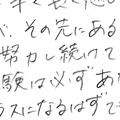 が、その先にある
努力し続けて
験は必ずあ
ラスになるはずで